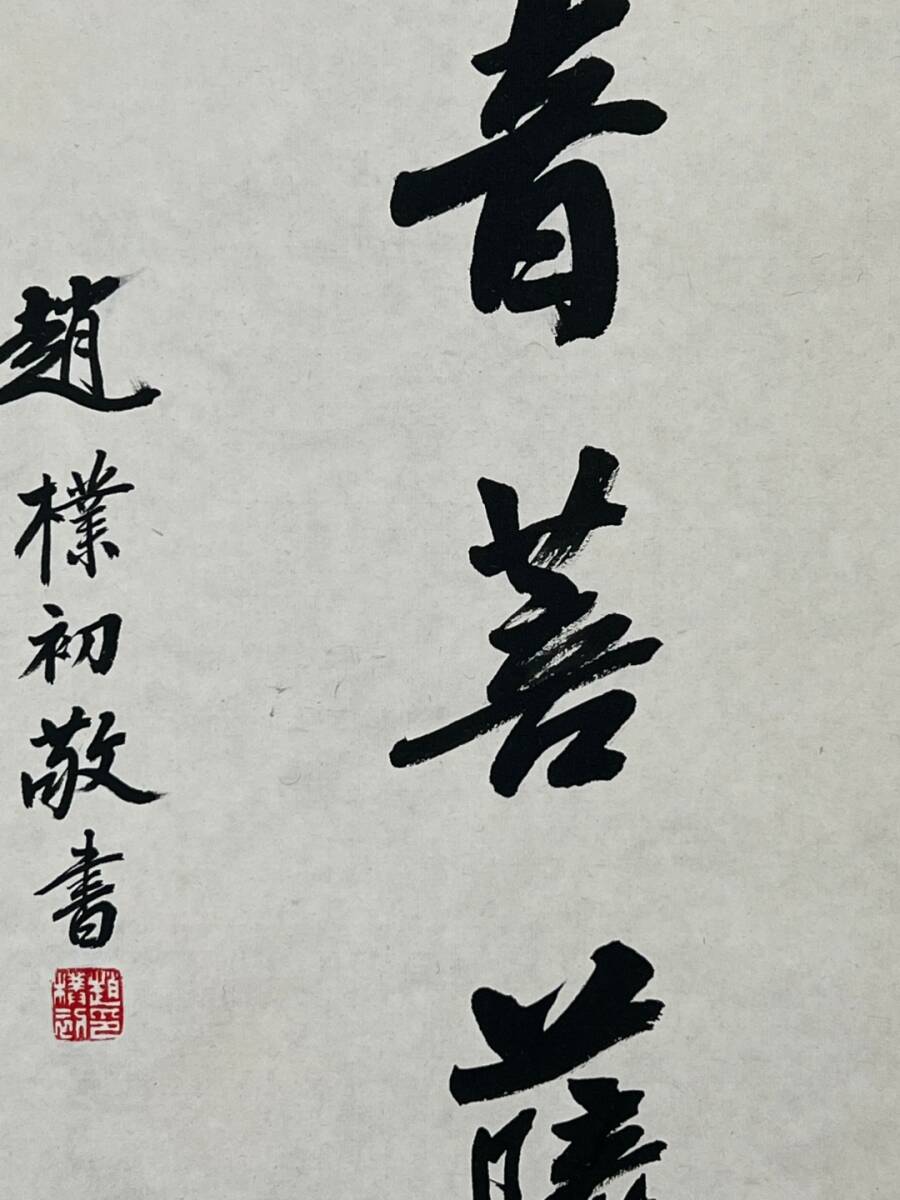 音菩薩
趙樸初敬書
趙樸初印